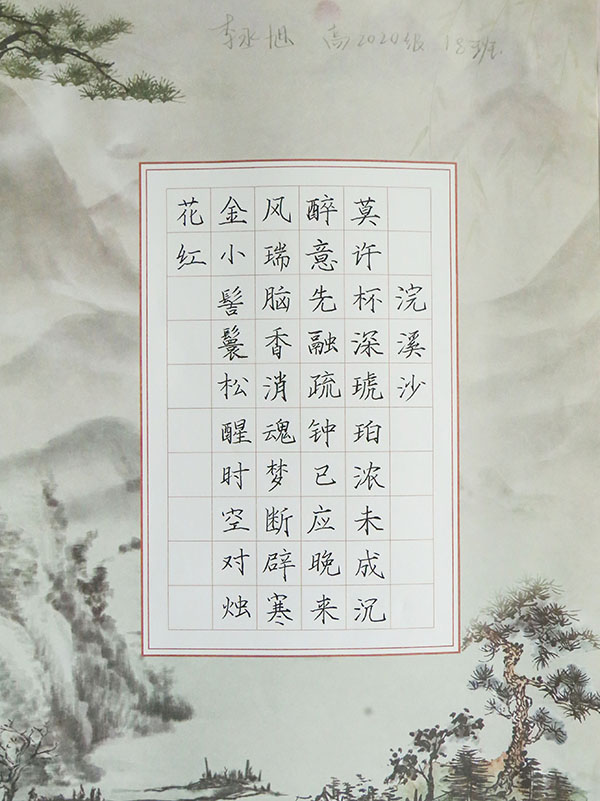 李永旭 高2020级 18班
浣溪沙
莫许杯深琥珀浓未成沉
醉意先融疏钟已应晚来
风瑞脑香消魂梦断辟寒
金小髻鬟松醒时空对烛
花红